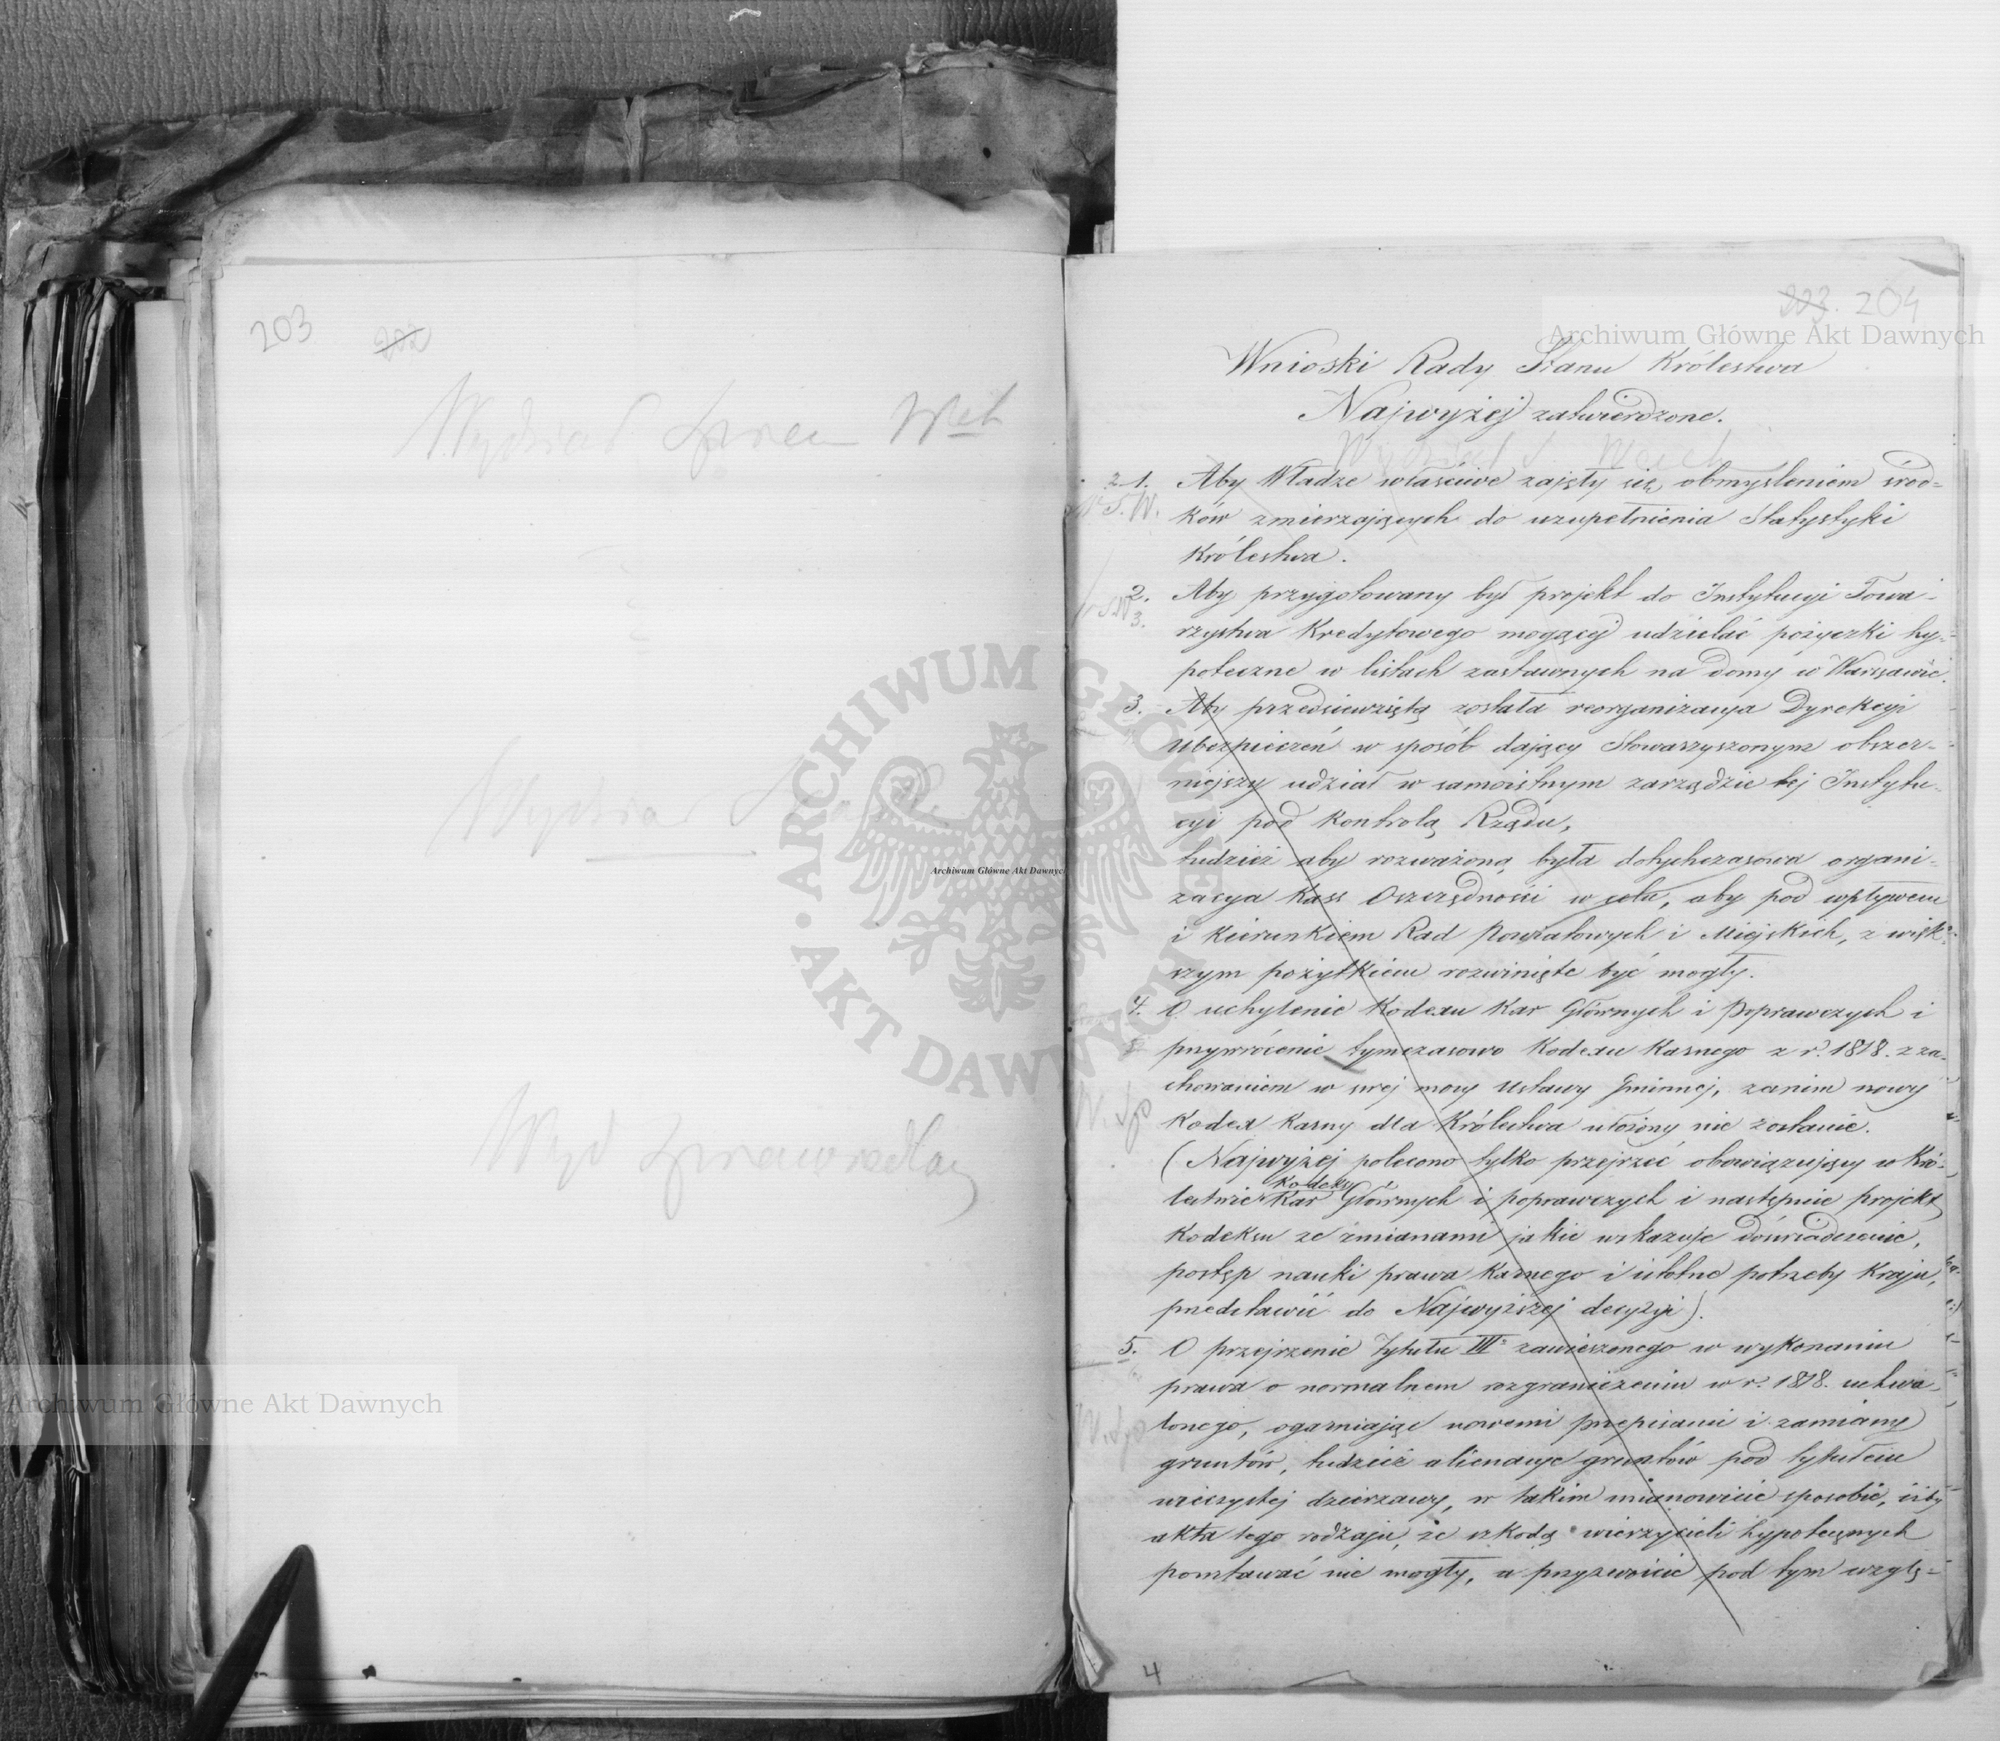 203
202
Wydział Spraw Wet
Wydział
Wyd Sprawiedlo
203. 204
Archiwum Główne Akt Dawnych
Wnioski Rady Stanu Królestwa
Najwyżej zatwierdzone.
Wydział S. Wewn
2 1. Aby Władze właściwe zajęły się obmyśleniem środ-
W S. W. ków zmierzających do uzupełnienia Statystyki
Królestwa.
2. Aby przygotowany był projekt do Instytucyi Towa-
3. rzystwa Kredytowego mogącej udzielać pożyczki hy-
poteczne w listach zastawnych na domy w Warszawie.
3. Aby przedsięwziętą została reorganizacya Dyrekcyi
Ubezpieczeń w sposób dający Stowarzyszonym obszer-
niejszy udział w samoistnym zarządzie tej Instytu-
cyi pod kontrolą Rządu,
tudzież aby rozważoną była dotychczasowa organi-
zacya Kass Oszczędności w celu, aby pod wpływem
i kierunkiem Rad Powiatowych i Miejskich, z więk-
szym pożytkiem rozwinięte być mogły.
4. O uchylenie Kodexu Kar Głównych i Poprawczych i
przywrócenie tymczasowo Kodexu Karnego z r. 1818. z za-
chowaniem w swej mocy Ustawy Gminnej, zanim nowy
Kodex Karny dla Królestwa ułożony nie zostanie.
(Najwyżej polecono tylko przejrzeć obowiązujący w Kró-
Kodeks
lestwie Kar Głównych i poprawczych i następnie projekt
Kodeksu ze zmianami jakie wskazuje doświadczenie,
postęp nauki prawa karnego i istotne potrzeby Kraju,
przedstawić do Najwyższej decyzyi).
5. O przejrzenie Tytułu III zawieszonego w wykonaniu
prawa o normalnem rozgraniczeniu w r. 1818. uchwa-
lonego, ogarniając nowemi przepisami i zamianę
gruntów, tudzież alienacye gruntów pod tytułem
wieczystej dzierżawy, w takim mianowicie sposobie, iżby
akta tego rodzaju, ze szkodą wierzycieli hypotecznych
powstawać nie mogły, a przyzwoicie pod tym wzglę-
4
ARCHIWUM GŁÓWNE AKT DAWNYCH
Archiwum Główne Akt Dawnych
Archiwum Główne Akt Dawnych